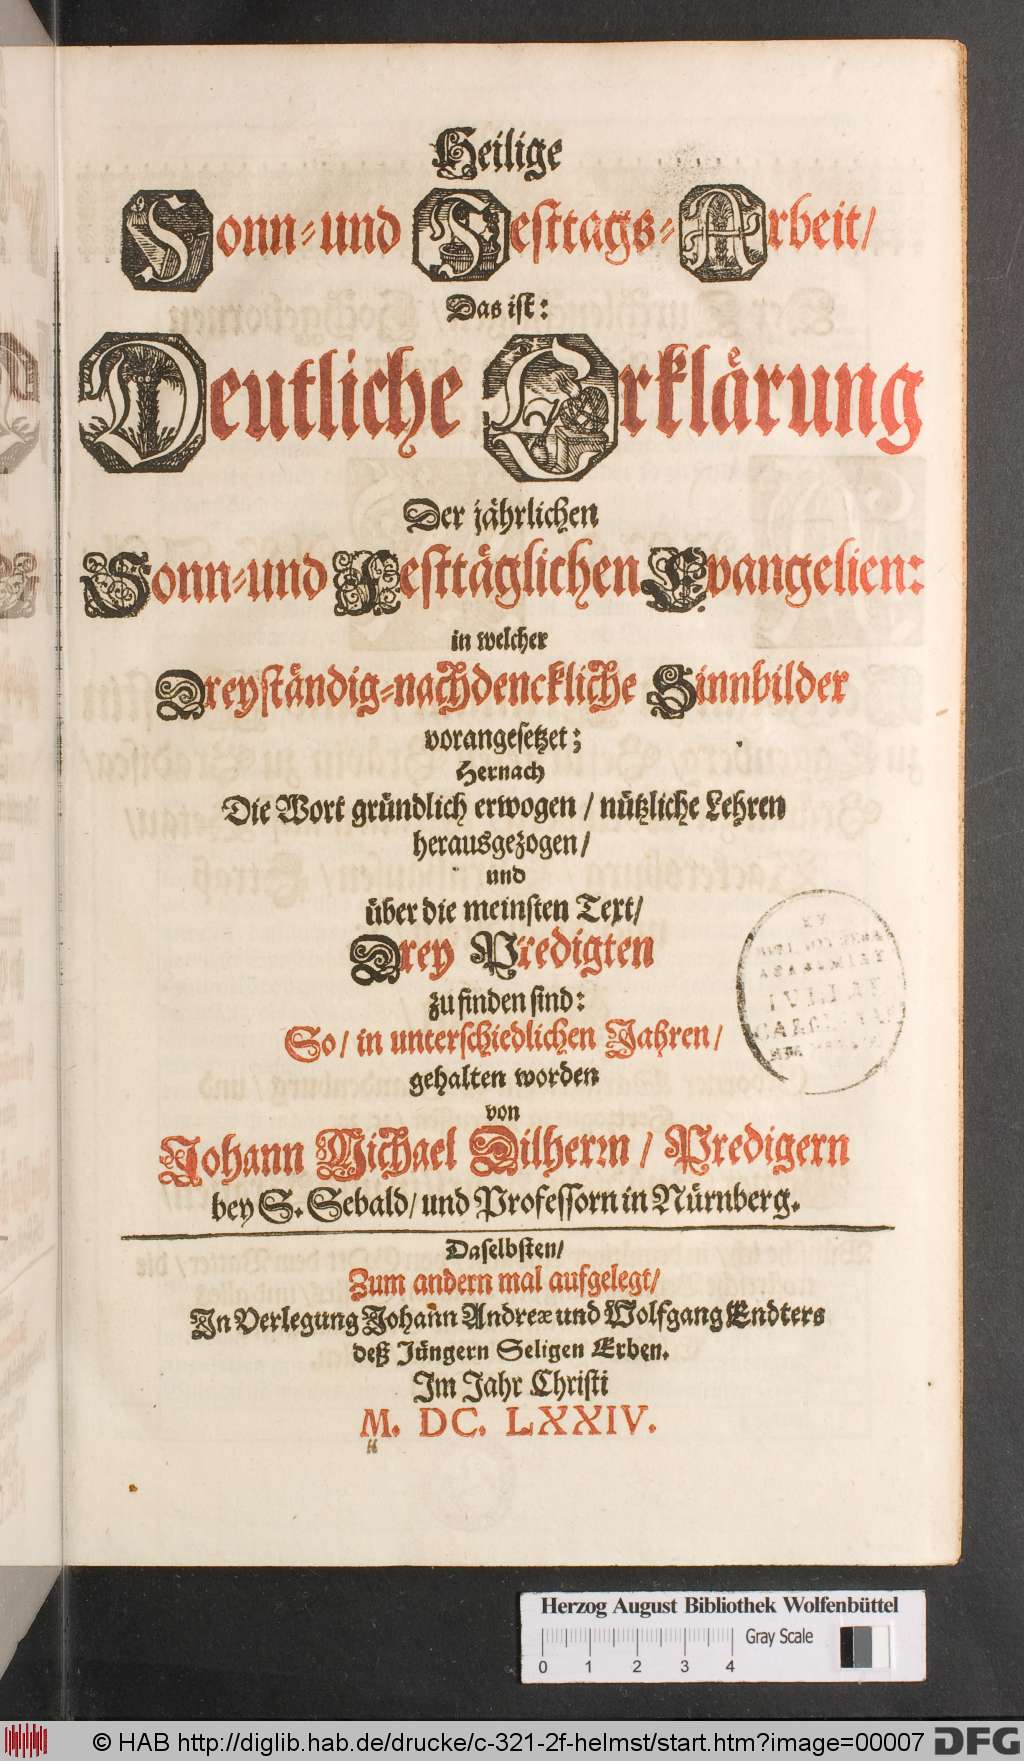 Heilige
Sonn-und Festtags-Arbeit/
Das ist:
Deutliche Erklaͤrung
Der jaͤhrlichen
Sonn-und Festtaͤglichen Evangelien:
in welcher
Dreystaͤndig-nachdenckliche Sinnbilder
vorangesetzet;
Hernach
Die Wort gruͤndlich erwogen / nuͤtzliche Lehren
herausgezogen/
und
uͤber die meinsten Text/
Drey Predigten
zu finden sind:
So/ in unterschiedlichen Jahren/
gehalten worden
von
Johann Michael Dilherrn / Predigern
bey S. Sebald/ und Professorn in Nuͤrnberg.
Daselbsten/
Zum andern mal aufgelegt/
In Verlegung Johann Andreæ und Wolfgang Endters
deß Juͤngern Seligen Erben.
Im Jahr Christi
M. DC. LXXIV.
Herzog August Bibliothek Wolfenbüttel
Gray Scale
0 1 2 3 4
© HAB http://diglib.hab.de/drucke/c-321-2f-helmst/start.htm?image=00007
DFG